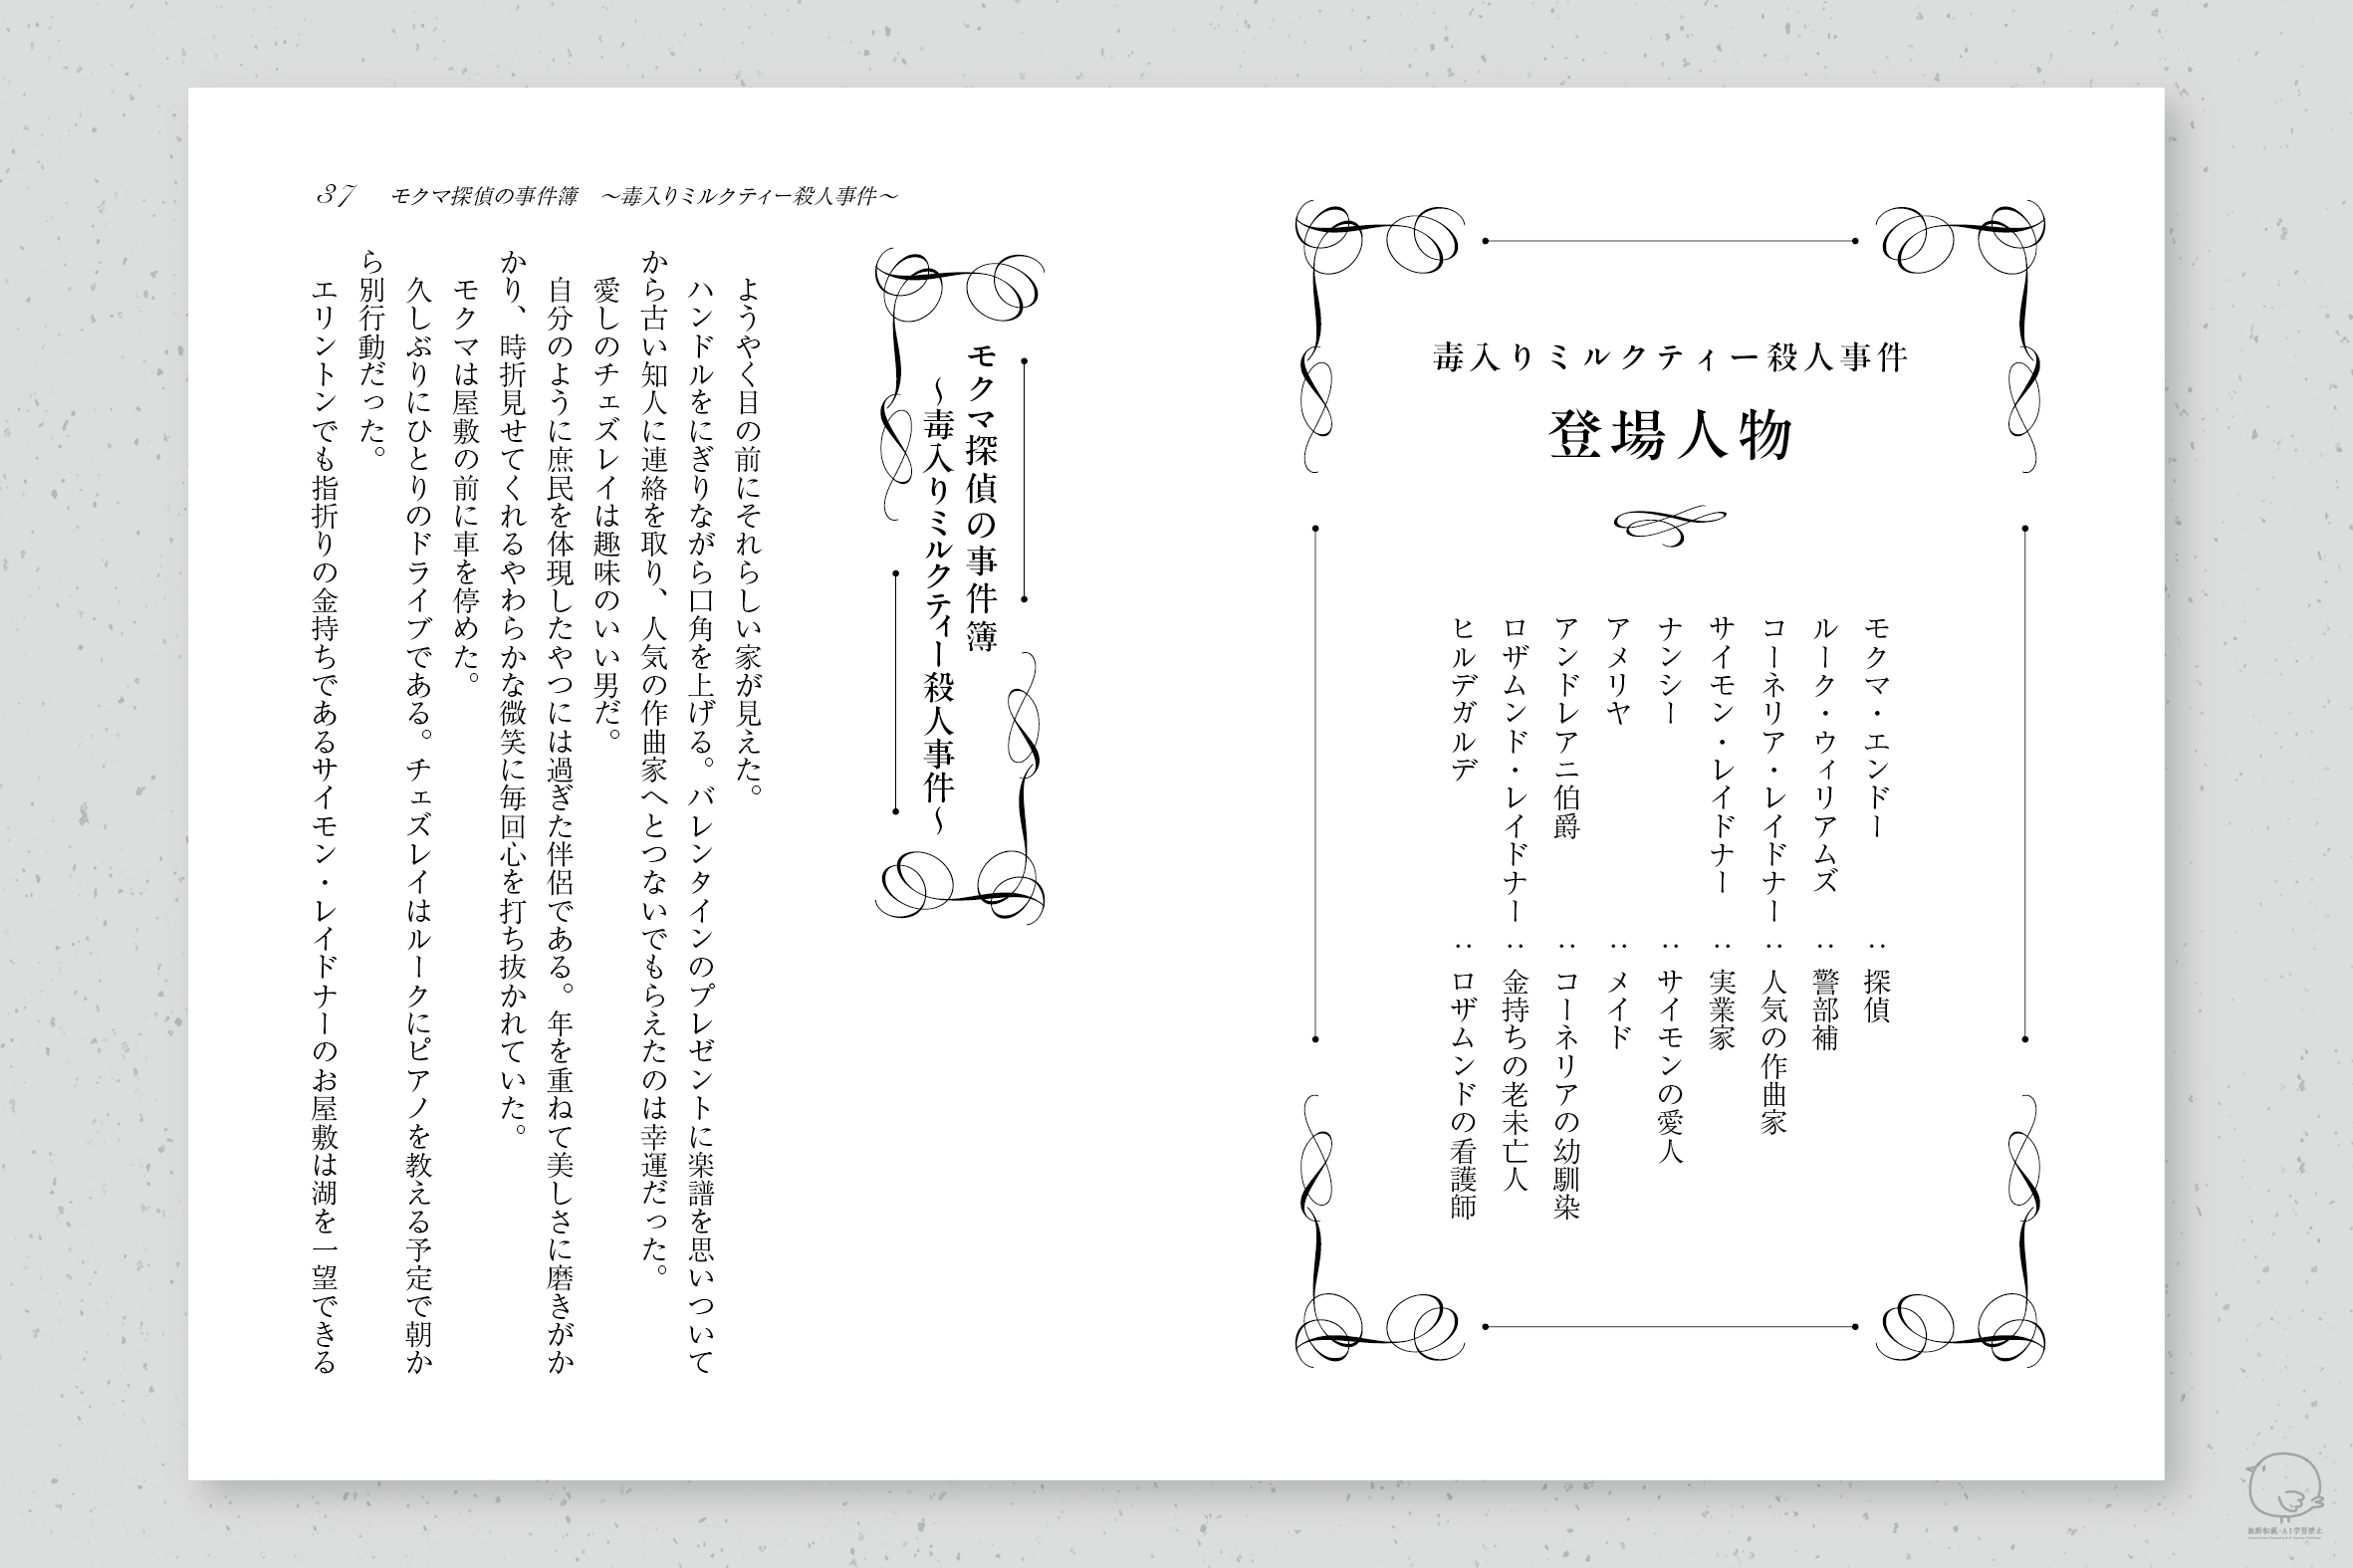 毒入りミルクティー殺人事件
登場人物
モクマ・エンドー：探偵
ルーク・ウィリアムズ：警部補
コーネリア・レイドナー：人気の作曲家
サイモン・レイドナー：実業家
ナンシー：サイモンの愛人
アメリヤ：メイド
アンドレアニ伯爵：コーネリアの幼馴染
ロザムンド・レイドナー：金持ちの老未亡人
ヒルデガルデ：ロザムンドの看護師
37 モクマ探偵の事件簿 ～毒入りミルクティー殺人事件～
モクマ探偵の事件簿
～毒入りミルクティー殺人事件～
ようやく目の前にそれらしい家が見えた。
ハンドルをにぎりながら口角を上げる。バレンタインのプレゼントに楽譜を思いついて
から古い知人に連絡を取り、人気の作曲家へとつないでもらえたのは幸運だった。
愛しのチェズレイは趣味のいい男だ。
自分のように庶民を体現したやつには過ぎた伴侶である。年を重ねて美しさに磨きがか
かり、時折見せてくれるやわらかな微笑に毎回心を打ち抜かれていた。
モクマは屋敷の前に車を停めた。
久しぶりにひとりのドライブである。チェズレイはルークにピアノを教える予定で朝か
ら別行動だった。
エリントンでも指折りの金持ちであるサイモン・レイドナーのお屋敷は湖を一望できる
無断転載・AI学習禁止